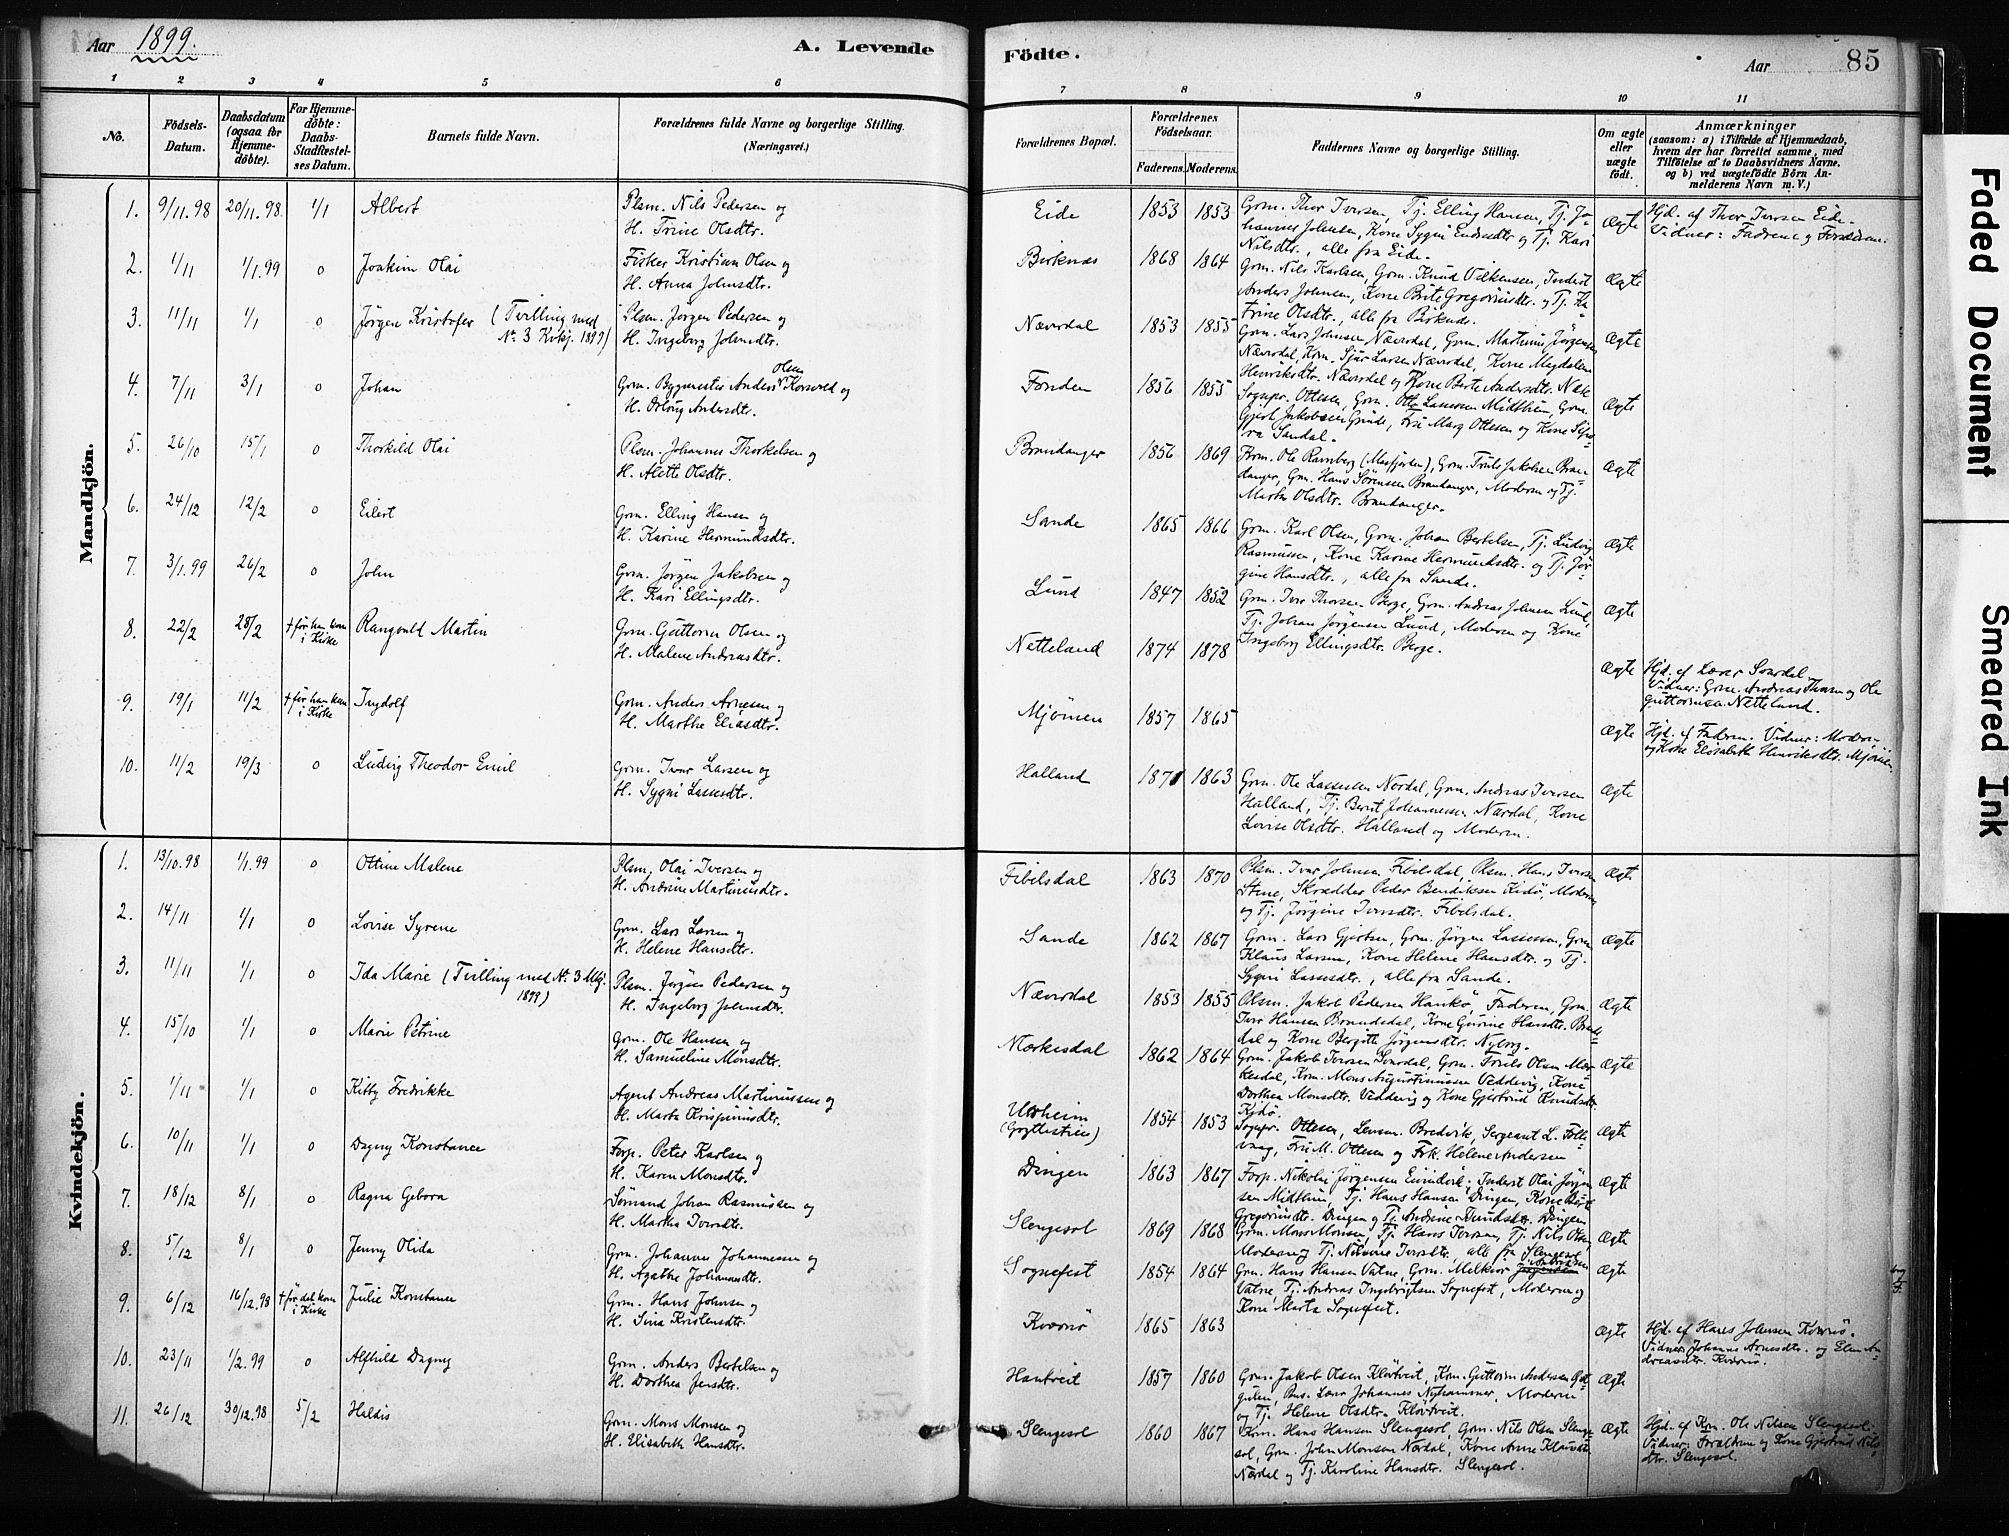 Aar 1899.
A. Levende
Födte.
Aar
85
1 2 3 4 5 6 7 8 9 10 11
No.
Födsels-
Datum.
Daabsdatum
(ogsaa for
Hjemme-
döbte).
For Hjemme-
döbte:
Daabs-
Stadfestel-
ses Datum.
Barnets fulde Navn.
Forældrenes fulde Navne og borgerlige Stilling.
(Næringsvei.)
Forældrenes Bopæl.
Forældrenes
Födselsaar.
Faderens. Moderens.
Faddernes Navne og borgerlige Stilling.
Om ægte
eller
uægte
födt.
Anmærkninger
(saasom: a) i Tilfælde af Hjemmedaab,
hvem der har forrettet samme, med
Tilföielse af to Daabsvidners Navne,
og b) ved uægtefödte Börn An-
melderens Navn m. V.)
Mandkjön.
1. 9/11.98 20/11.98. 1/1 Albert Plsm. Nils Pedersen og
H. Trine Olsdtr.
Eide 1853 1853 Grm. Thor Iversen, Tj. Elling Hansen, Tj. Jo-
hannes Johnsen, Kone Sygni Endresdtr og Tj. Kari
Nilsdtr., alle fra Eide.
Ægte Hjd. af Thor Iversen Eide.
Vidner: Fadrene og Forældrene.
2. 1/11 1/1.99 0 Joakim Olai Fisker Kristian Olsen og
H. Anna Johnsdtr.
Birknæs 1868 1864 Grm. Nils Karlsen, Grm. Knud Vilkensen, Inderst
Anders Johnsen, Kone Brite Gregoriusdtr. og Tj. Ka-
trine Olsdtr., alle fra Birknæs.
Ægte
3. 11/11 1/1 0 Jørgen Kristofer (Tvilling med
Nr. 3 Kvkj. 1899)
Plsm. Jørgen Pedersen og
H. Ingeborg Johnsdtr.
Nævrdal 1853 1855 Grm. Lars Johnsen Nævrdal, Grm. Martinus Jörgensen
Nævrdal, Krm. Sjur Larsen Nævrdal, Kone Magdalene
Henriksdtr. Nævrdal og Kone Berte Andersdtr.
Ægte
4. 7/11 3/1 0 Johan Grm. Bygmester Anders Olsen Korsvold og
H. Andersdtr.
Fonden 1856 1855 Sognpr. Ottesen, Grm. Otto Lassesen Midthun, Grm.
Gjert Jakobsen Grinde, Fru Marg Ottesen og Kone
Sandal.
Ægte
5. 26/10 15/1 0 Thorkild Olai Plsm. Johannes Thorkelsen og
H. Alette Olsdtr.
Brandanger 1856 1869 Ole Ramberg (Masfjorden), Grm. Truls Jakobsen Bran-
danger, Grm. Hans Sörensen Brandanger, Moderen og Tj.
Marta Olsdtr. Brandanger.
Ægte
6. 24/12 12/2 0 Eilert Grm. Elling Hansen og
H. Karine Hermundsdtr.
Sande 1865 1866 Grm. Karl Olsen, Grm. Johan Bertelsen, Tj. Ludvig
Rasmussen, Kone Karine Hermundsdtr. og Tj. Jör-
gine Hansdtr., alle fra Sande.
Ægte
7. 3/1.99 26/2 0 John Grm. Jörgen Jakobsen og
H. Kari Ellingsdtr.
Lund 1847 1852 Grm. Iver Thorsen Berge, Grm. Andreas Johnsen Lund,
Tj. Johan Jörgensen Lund, Moderen og Kone
Ingeborg Ellingsdtr. Berge.
Ægte
8. 22/2 28/2 † før han kom
i Kirke
Rangvald Martin Grm. Guttorm Olsen og
H. Malene Andreasdtr.
Netteland 1874 1878 Ægte Hjd. af Lærer Sördal
Vidner: Grm. Andreas Thorsen og Ole
Guttormsen Netteland.
9. 19/1 11/2 † før han kom
i Kirke
Ingdolf Grm. Anders Arnesen og
H. Marthe Eliasdtr.
Mjömen 1857 1865 Ægte Hjd. af Faderen. Vidner: Moderen
og Kone Elisabeth Henriksdtr. Mjömen.
10. 11/2 19/3 0 Ludvig Theodor Emil Grm. Ivar Larsen og
H. Sygni Lassesdtr.
Halland 1871 1863 Grm. Ole Lassesen Nordal, Grm. Andreas Iversen
Halland, Tj. Bernt Johannessen Nærdal, Kone
Lovise Olsdtr. Halland og Moderen.
Ægte
Kvindekjön.
1. 13/10.98 1/1.99 0 Ottine Malene Plsm. Olai Iversen og
H. Andrine Martinusdtr.
Fibelsdal 1863 1870 Plsm. Ivar Johnsen Fibelsdal, Plsm. Hans Iversen
Stene, Skrædder Peder Bendiksen Kidö, Moderen
og Tj. Jörgine Iversdtr. Fibelsdal.
Ægte
2. 14/11 1/1 0 Lovise Syrene Grm. Lars Larsen og
H. Helene Hansdtr.
Sande 1862 1867 Grm. Lars Gjertsen, Grm. Jörgen Lassesen, Grm.
Klaus Larsen, Kone Helene Hansdtr. og Tj.
Sygni Lassesdtr., alle fra Sande.
Ægte
3. 11/11 1/1 0 Ida Marie (Tvilling med Nr. 3 Mkj.
1899)
Plsm. Jörgen Pedersen og
H. Ingeborg Johnsdtr.
Nævrdal 1853 1855 Plsm. Jakob Pedersen Hankö, Faderen, Grm.
Iver Hansen Brændedal, Kone Gurine Hansdtr. Brende-
dal og Kone Bergith Jörgensdtr. Nyborg.
Ægte
4. 15/10 1/1 0 Marie Petrine Grm. Ole Hansen og
H. Samueline Monsdtr.
Mærkesdal 1862 1864 Grm. Jakob Iversen Sördal, Grm. Truls Olsen Mær-
kesdal, Krm. Mons Augustinussen Veddevig, Kone
Dorthea Monsdtr. Veddevig og Kone Gjertrud Knudsdtr.
Kidö.
Ægte
5. 1/11 1/1 0 Kitty Fredrikke Agent Andreas Martinussen og
H. Marta Krispinusdtr.
Utheim 1854 1853 Sognpr. Ottesen, Lensm. Bredvik, Sergeant L. Folle-
vaag, Fru M. Ottesen og Frk. Helene Andersen
Ægte
6. 10/11 1/1 0 Dagny Konstance Forp. Peter Karlsen og
H. Karen Monsdtr.
Dingen 1863 1867 Forp. Nikolai Jörgensen, Inderst Olai Jörgen-
sen Midthun, Tj. Hans Hansen Dingen, Kone Berte
Gregoriusdtr. Dingen og Tj. Andrine Knudsdtr. Dingen
Ægte
7. 18/12 8/1 0 Ragna Gebora Sömand Johan Rasmussen og
H. Martha Iversdtr.
Slengesol 1869 1868 Grm. Mons Monsen, Tj. Hans Iversen, Tj. Nils Olsen,
Moderen og Tj. Nilsine Iversdtr. alle fra Slengesol
Ægte
8. 5/12 8/1 0 Jenny Olida Grm. Johannes Johannessen og
H. Agathe Johannesdtr.
Sognefest 1854 1864 Grm. Hans Hansen Vatne, Grm. Melkior
Vatne, Tj. Andreas Ingebrigtsen Sognefest, Moderen og
Kone Marta Sognefest.
Ægte
9. 6/12 16/12.98 † før det kom
i Kirke
Julie Konstance Grm. Hans Johnsen og
H. Sina Kristensdtr.
Kværnö 1865 1863 Ægte Hjd. af Hans Johnsen Kværnö.
Vidner Johanne Arnesdtr. og Elen An-
dreasdtr. Kværnö.
10. 23/11 1/2.99 0 Alfhild Dagny Grm. Anders Bertelsen og
H. Dorthea Jensdtr.
Hantveit 1857 1860 Grm. Jakob Olsen Klövtveit, Krm. Guttorm Andersen
Lærer Johannes Nyhammer, Moderen
og Tj. Helene Olsdtr. Klövtveit.
Ægte
11. 26/12 30/12.98 5/2 Haldis Grm. Mons Monsen og
H. Elisabeth Hansdtr.
Slengesol 1860 1867 Krm. Hans Hansen Slengesol, Grm. Nils Olsen Slenge-
sol, Grm. John Monsen Nordal, Kone Anne Klausdtr
Nærdal og Tj. Karoline Hansdtr. Slengesol.
Ægte Hjd. af Krm. Ole Nilsen Slengesol.
Vidner: Forældrene og Kone Gjertrud Nils-
dtr. Slengesol.
Faded Document
Smeared Ink